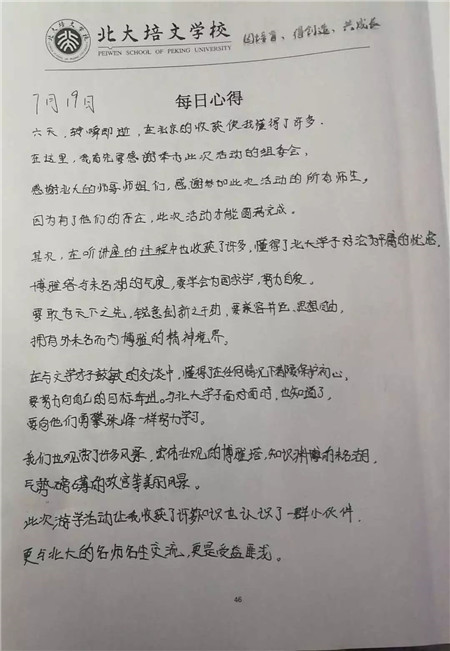 北大培文学校
PEIWEN SCHOOL OF PEKING UNIVERSITY
因培育、得创造、共成长
7月19日
每日心得
六天,转瞬即逝,在北京的收获使我懂得了许多.
在这里,我首先要感谢本次此次活动的组委会,
感谢北大的师哥师姐们,感谢参加此次活动的所有师生。
因为有了他们的存在,此次活动才能圆满完成。
其次,在听讲座的过程中也收获了许多,懂得了北大学子对
博雅塔与未名湖的气度,要学会为国求学,努力自爱。
要敢为天下之先,锐意创新之于勤,要兼容并包、思想自由,
拥有外未名而内博雅的精神境界。
在与文学才子 的交谈中,懂得了在任何情况下都要保护初心,
要努力向自己的目标奔进。与北大学子面对面时,也知道了,
要向他们勇攀珠峰一样努力学习。
我们也观赏了许多风景,宏伟壮观的博雅塔,知识渊博的未名湖,
气势磅礴的故宫等美的风景。
此次游学活动让我收获了许多知识也认识了一群小伙伴.
更与北大的名师名生交流,更是受益匪浅。
46